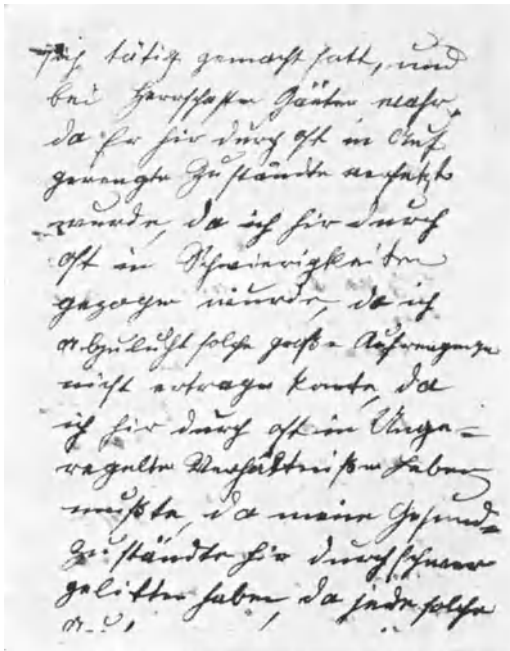 sich tätig gemacht hatt, und
bei Herrschaften Gäuter wahr,
da Er hir durch oft in Auf
geregte Zuständte versetzt
wurde, da ich hir durch
oft in Schwierigkeiten
gezogen wurde, da ich
solche große Aufregunge
nicht ertragen konte, da
ich hir durch oft in Unge=
regelte Verhältniße Leben
mußte, da meine Gesund=
Zuständte hir durch schwer
gelitten haben, da jede solche